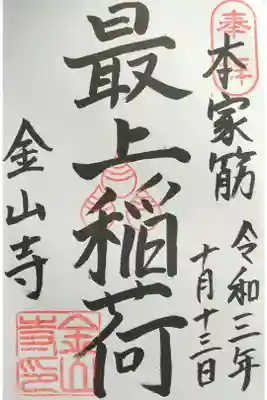 奉拝
本家筋
令和三年
十月十三日
最上稲荷
金山寺
金山寺印